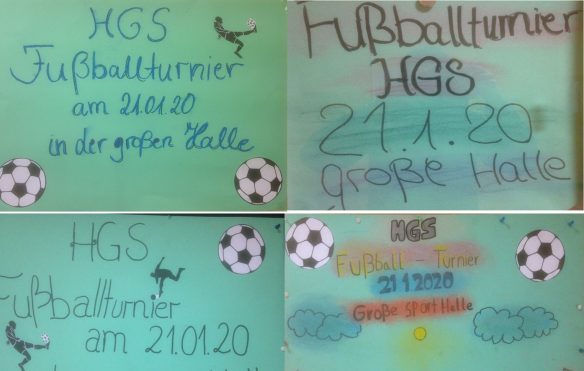 HGS
Fußballturnier
am 21.01.20
in der großen Halle
Fußballturnier
HGS
21.1.20
große Halle
HGS
Fußballturnier
am 21.01.20
HGS
Fußball - Turnier
21 1 2020
Große sport Halle